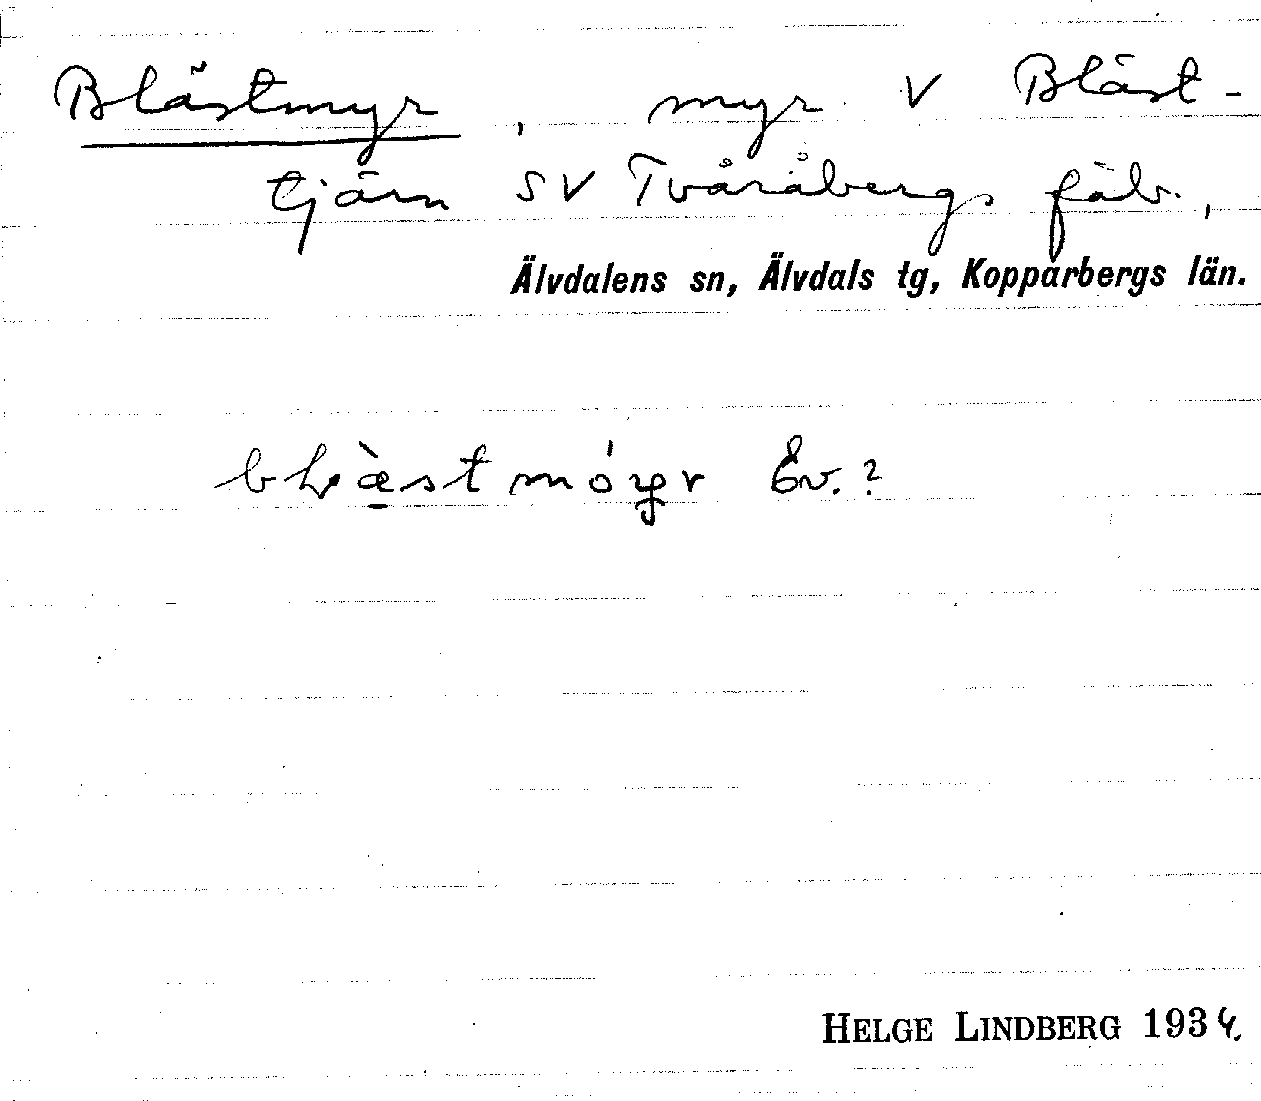 Blästmyr, myr V Bläst-
tjärn SV Tvåråbergs fäb.,
Älvdalens sn, Älvdals tg, Kopparbergs län.
HELGE LINDBERG 1934.